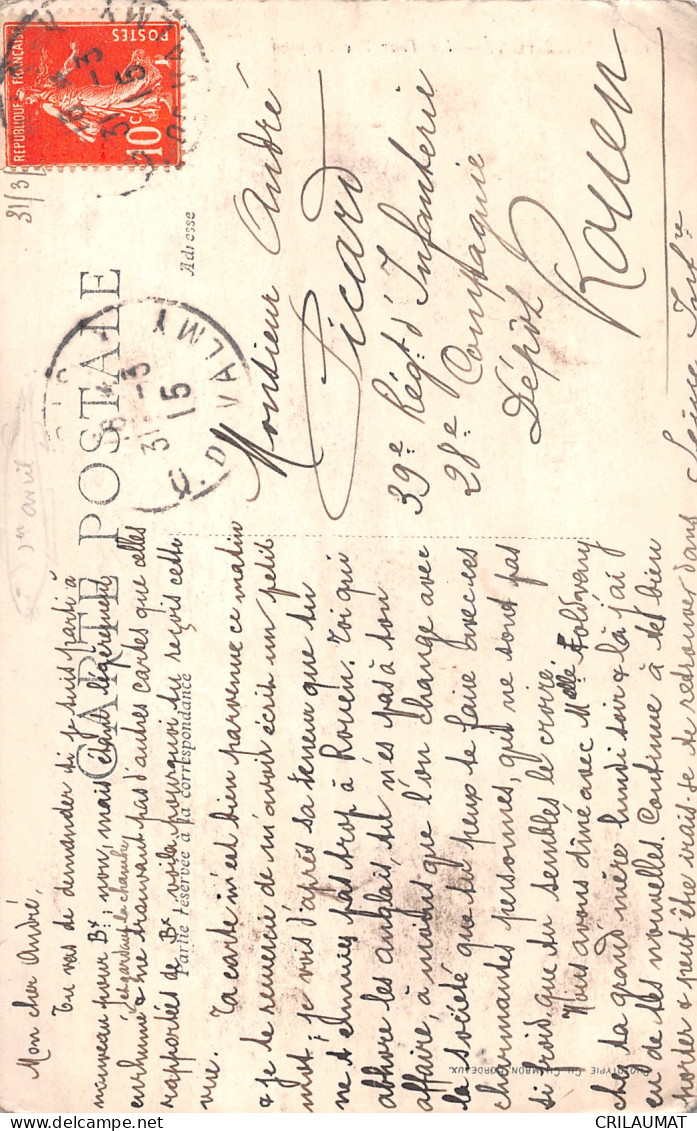 RÉPUBLIQUE FRANÇAISE
POSTES
10c
31 - 3
15
31/3
1er avril
CARTE POSTALE
Partie réservée à la correspondance
Adresse
31 - 3
15
Q. DE VALMY
Monsieur André
Picard
39e Régt d'Infanterie
28e Compagnie
Dépôt
Rouen
Seine Infre
Mon cher André,
Tu vas te demander si je suis parti à
nouveau pour Bx; non, mais étant légèrement
enrhumé je gardais la chambre
& ne trouvant pas d'autres cartes que celles
rapportées de Bx voilà pourquoi tu reçois cette
vue. Ta carte m'est bien parvenue ce matin
& je te remercie de m'avoir écrit un petit
mot; je vois d'après sa teneur que tu
ne t'ennuies pas trop à Rouen. Toi qui
abhorre les anglais, tu n'es pas à ton
affaire, à moins que l'on change avec
la société que tu peux te faire avec ces
charmantes personnes, qui ne sont pas
si froids que tu sembles le croire.
Nous avons dîné avec Melle Földvary
chez ta grand mère lundi soir & là j'ai
eu de tes nouvelles. Continue à te bien
porter & peut être irais-je te retrouver dans
PHOTOTYPIE CH. CHAMBON, BORDEAUX
CRILAUMAT